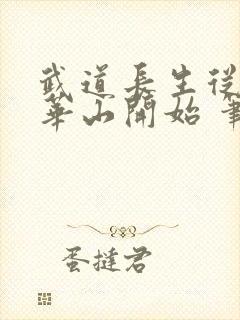 武道長生從
華山開始 筆
蛋撻君